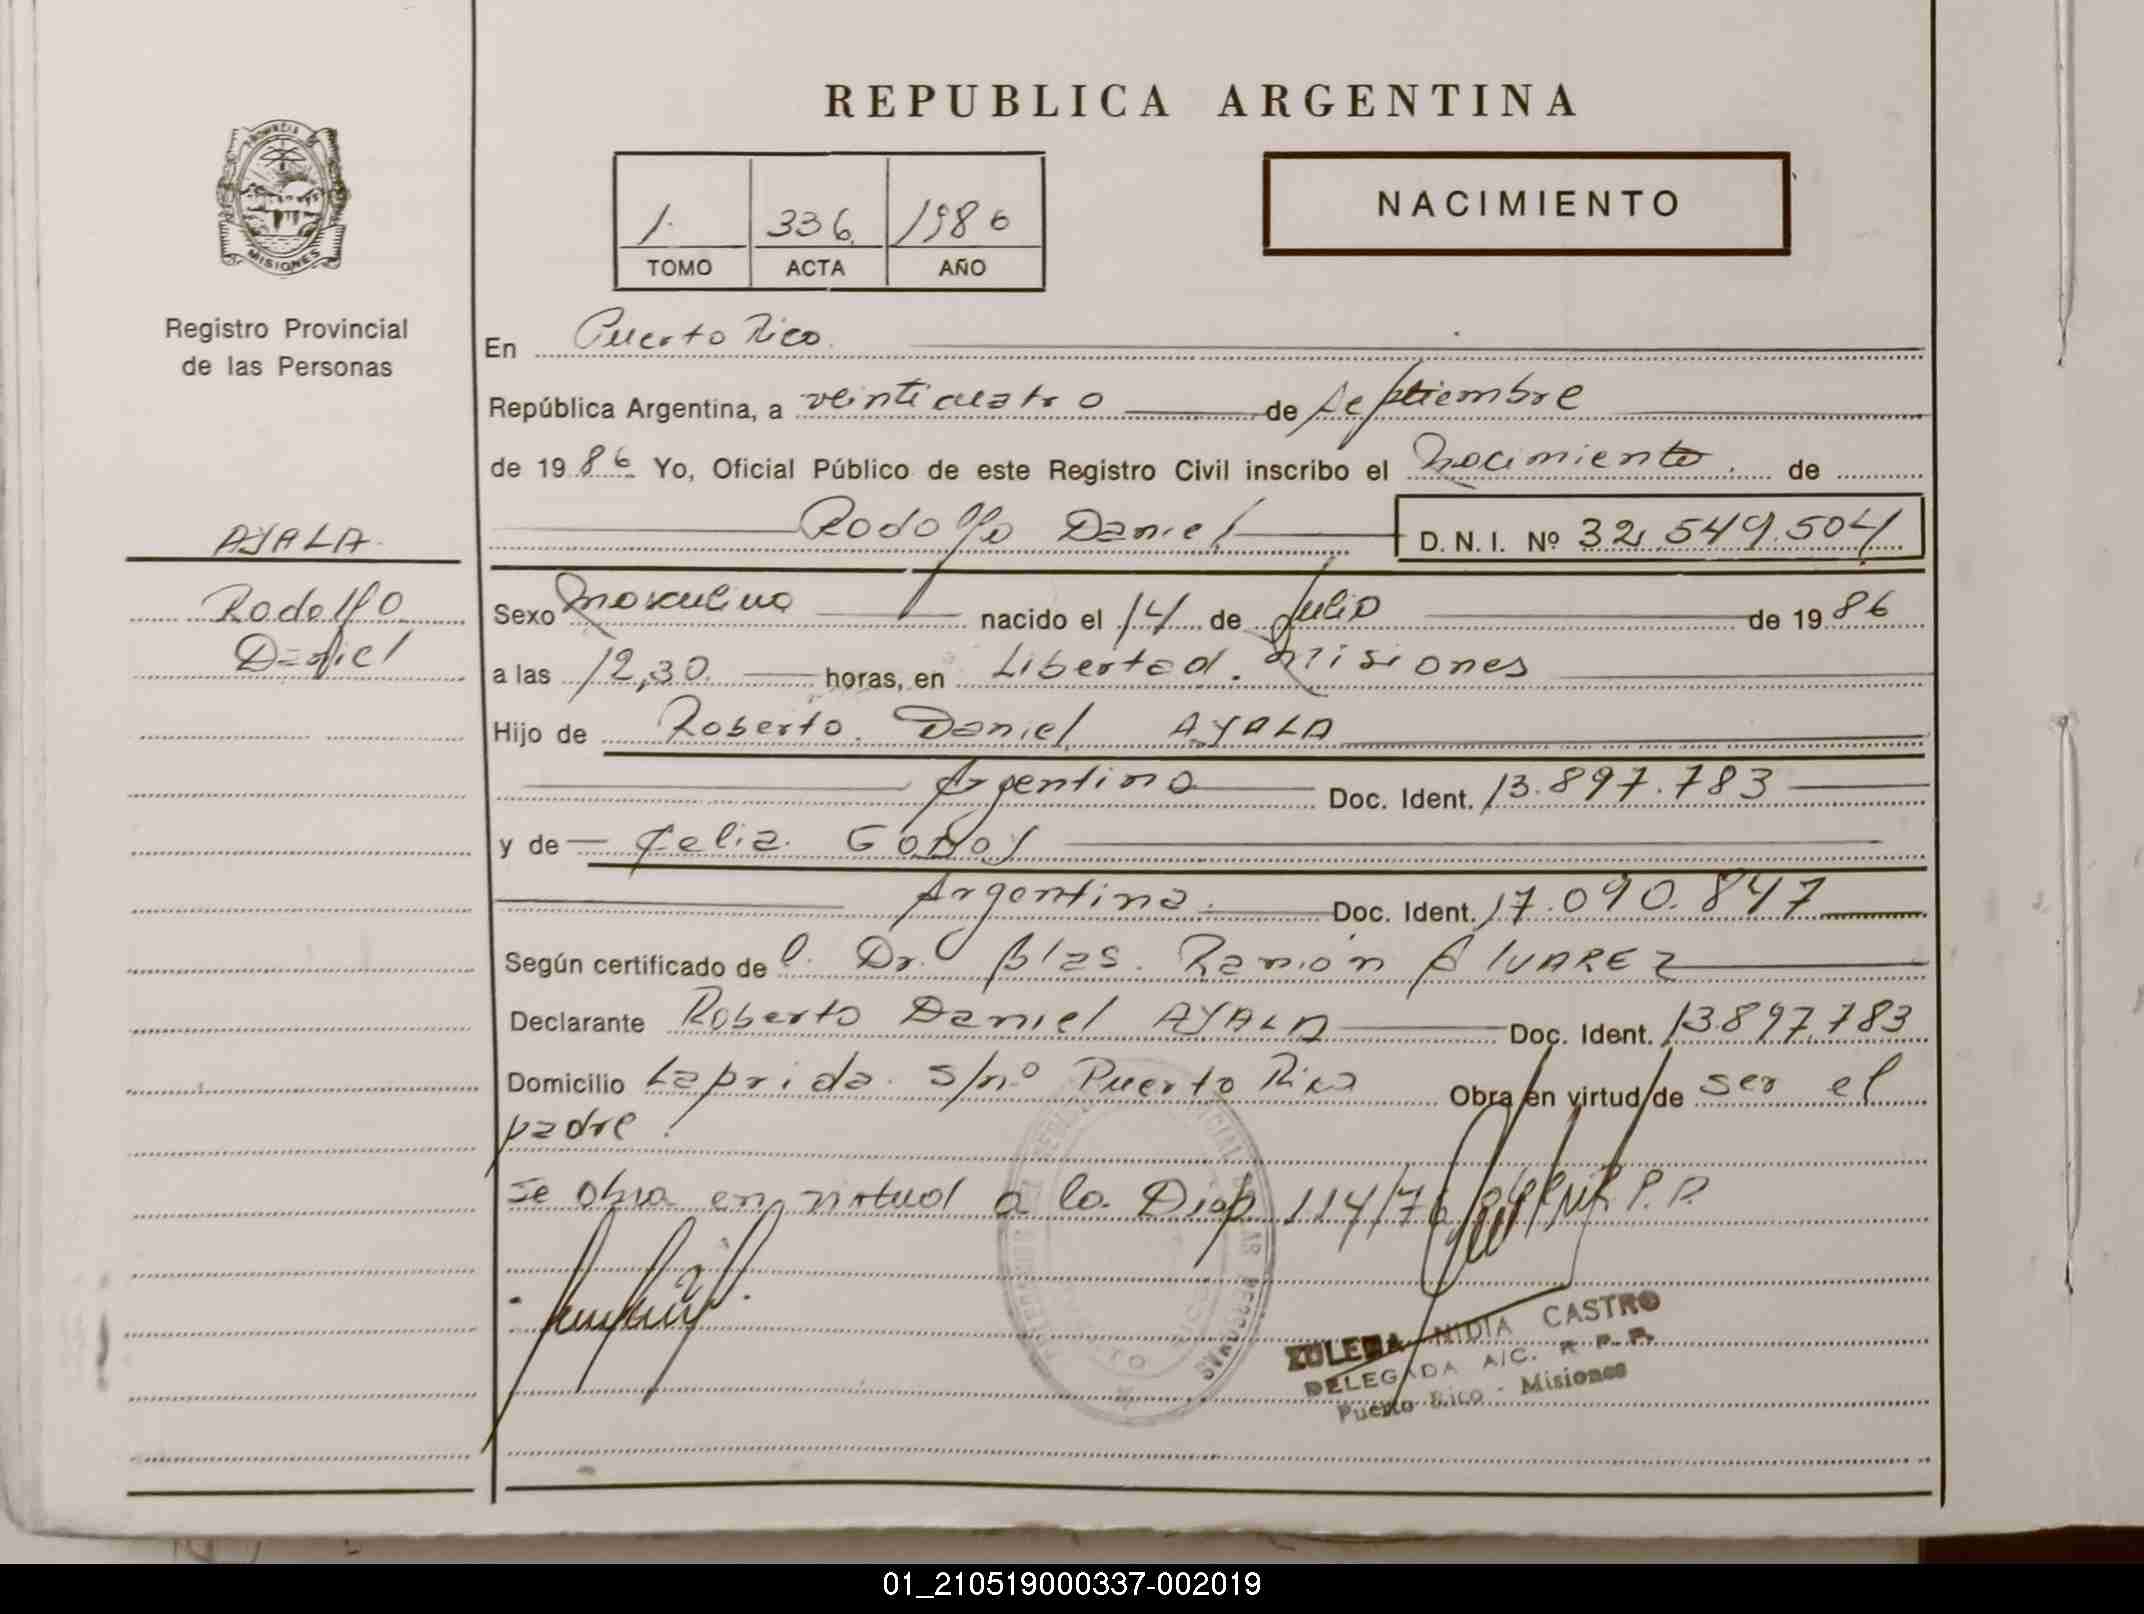 REPUBLICA ARGENTINA
PROVINCIA DE
MISIONES
1. 336. 1986
TOMO ACTA AÑO
NACIMIENTO
Registro Provincial
de las Personas
AYALA
Rodolfo
Daniel
En Puerto Rico.
República Argentina, a veinticuatro de Septiembre
de 1986 Yo, Oficial Público de este Registro Civil inscribo el Nacimiento. de
Rodolfo Daniel D. N. I. Nº 32.549.504
Sexo Masculino nacido el 14 de Julio de 1986
a las 12,30 horas, en Libertad. Misiones
Hijo de Roberto Daniel AYALA
Argentino Doc. Ident. 13.897.783
y de Celia GODOY
Argentina. Doc. Ident. 17.090.847
Según certificado de l. Dr. Blas. Ramón ALVAREZ
Declarante Roberto Daniel AYALA Doc. Ident. 13.897.783
Domicilio Laprida. s/nº Puerto Rico Obra en virtud de ser el
padre.
Se obra en virtud a la Disp 114/76 R.P.P.
ZULEMA NIDIA CASTRO
DELEGADA A/C. R. P. P.
Puerto Rico - Misiones
01_210519000337-002019